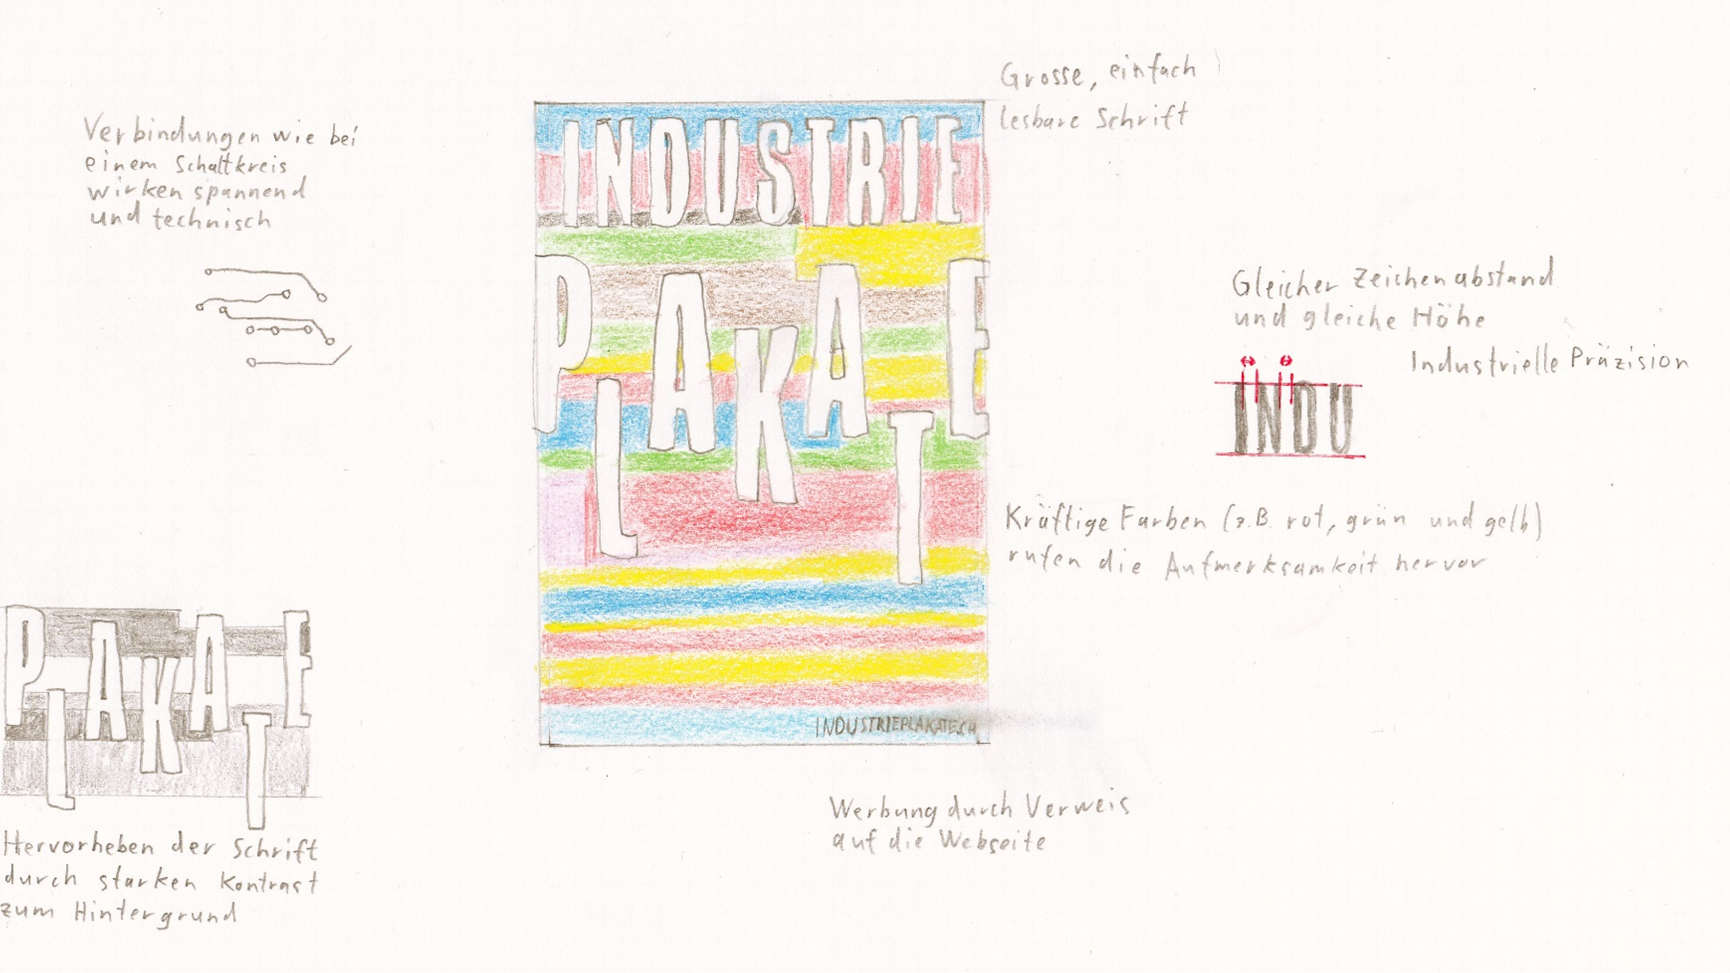 Grosse, einfach
lesbare Schrift
Verbindungen wie bei
einem Schaltkreis
wirken spannend
und technisch
INDUSTRIE
PLAKATE
Gleicher Zeichenabstand
und gleiche Höhe
Industrielle Präzision
INDU
Kräftige Farben (z.B. rot, grün und gelb)
rufen die Aufmerksamkeit hervor
INDUSTRIEPLAKATE.CH
PLAKATE
Werbung durch Verweis
auf die Webseite
Hervorheben der Schrift
durch starken Kontrast
zum Hintergrund